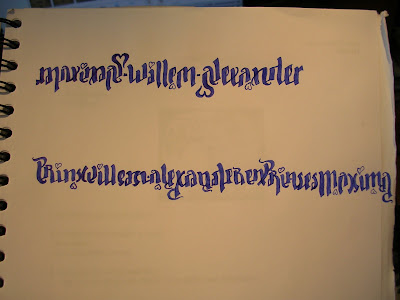 maxima♡willem-alexander
Prins willem-alexander en Prinses Maxima